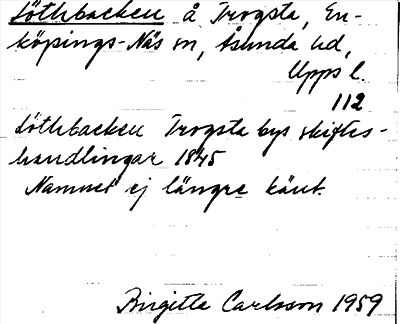 Löthbacken å Trogsta, En-
köpings-Näs sn, Åsunda hd,
Upps l.
112
Löthbacken Trogsta bys skiftes-
handlingar 1845
Namnet ej längre känt.
Birgitta Carlsson 1959